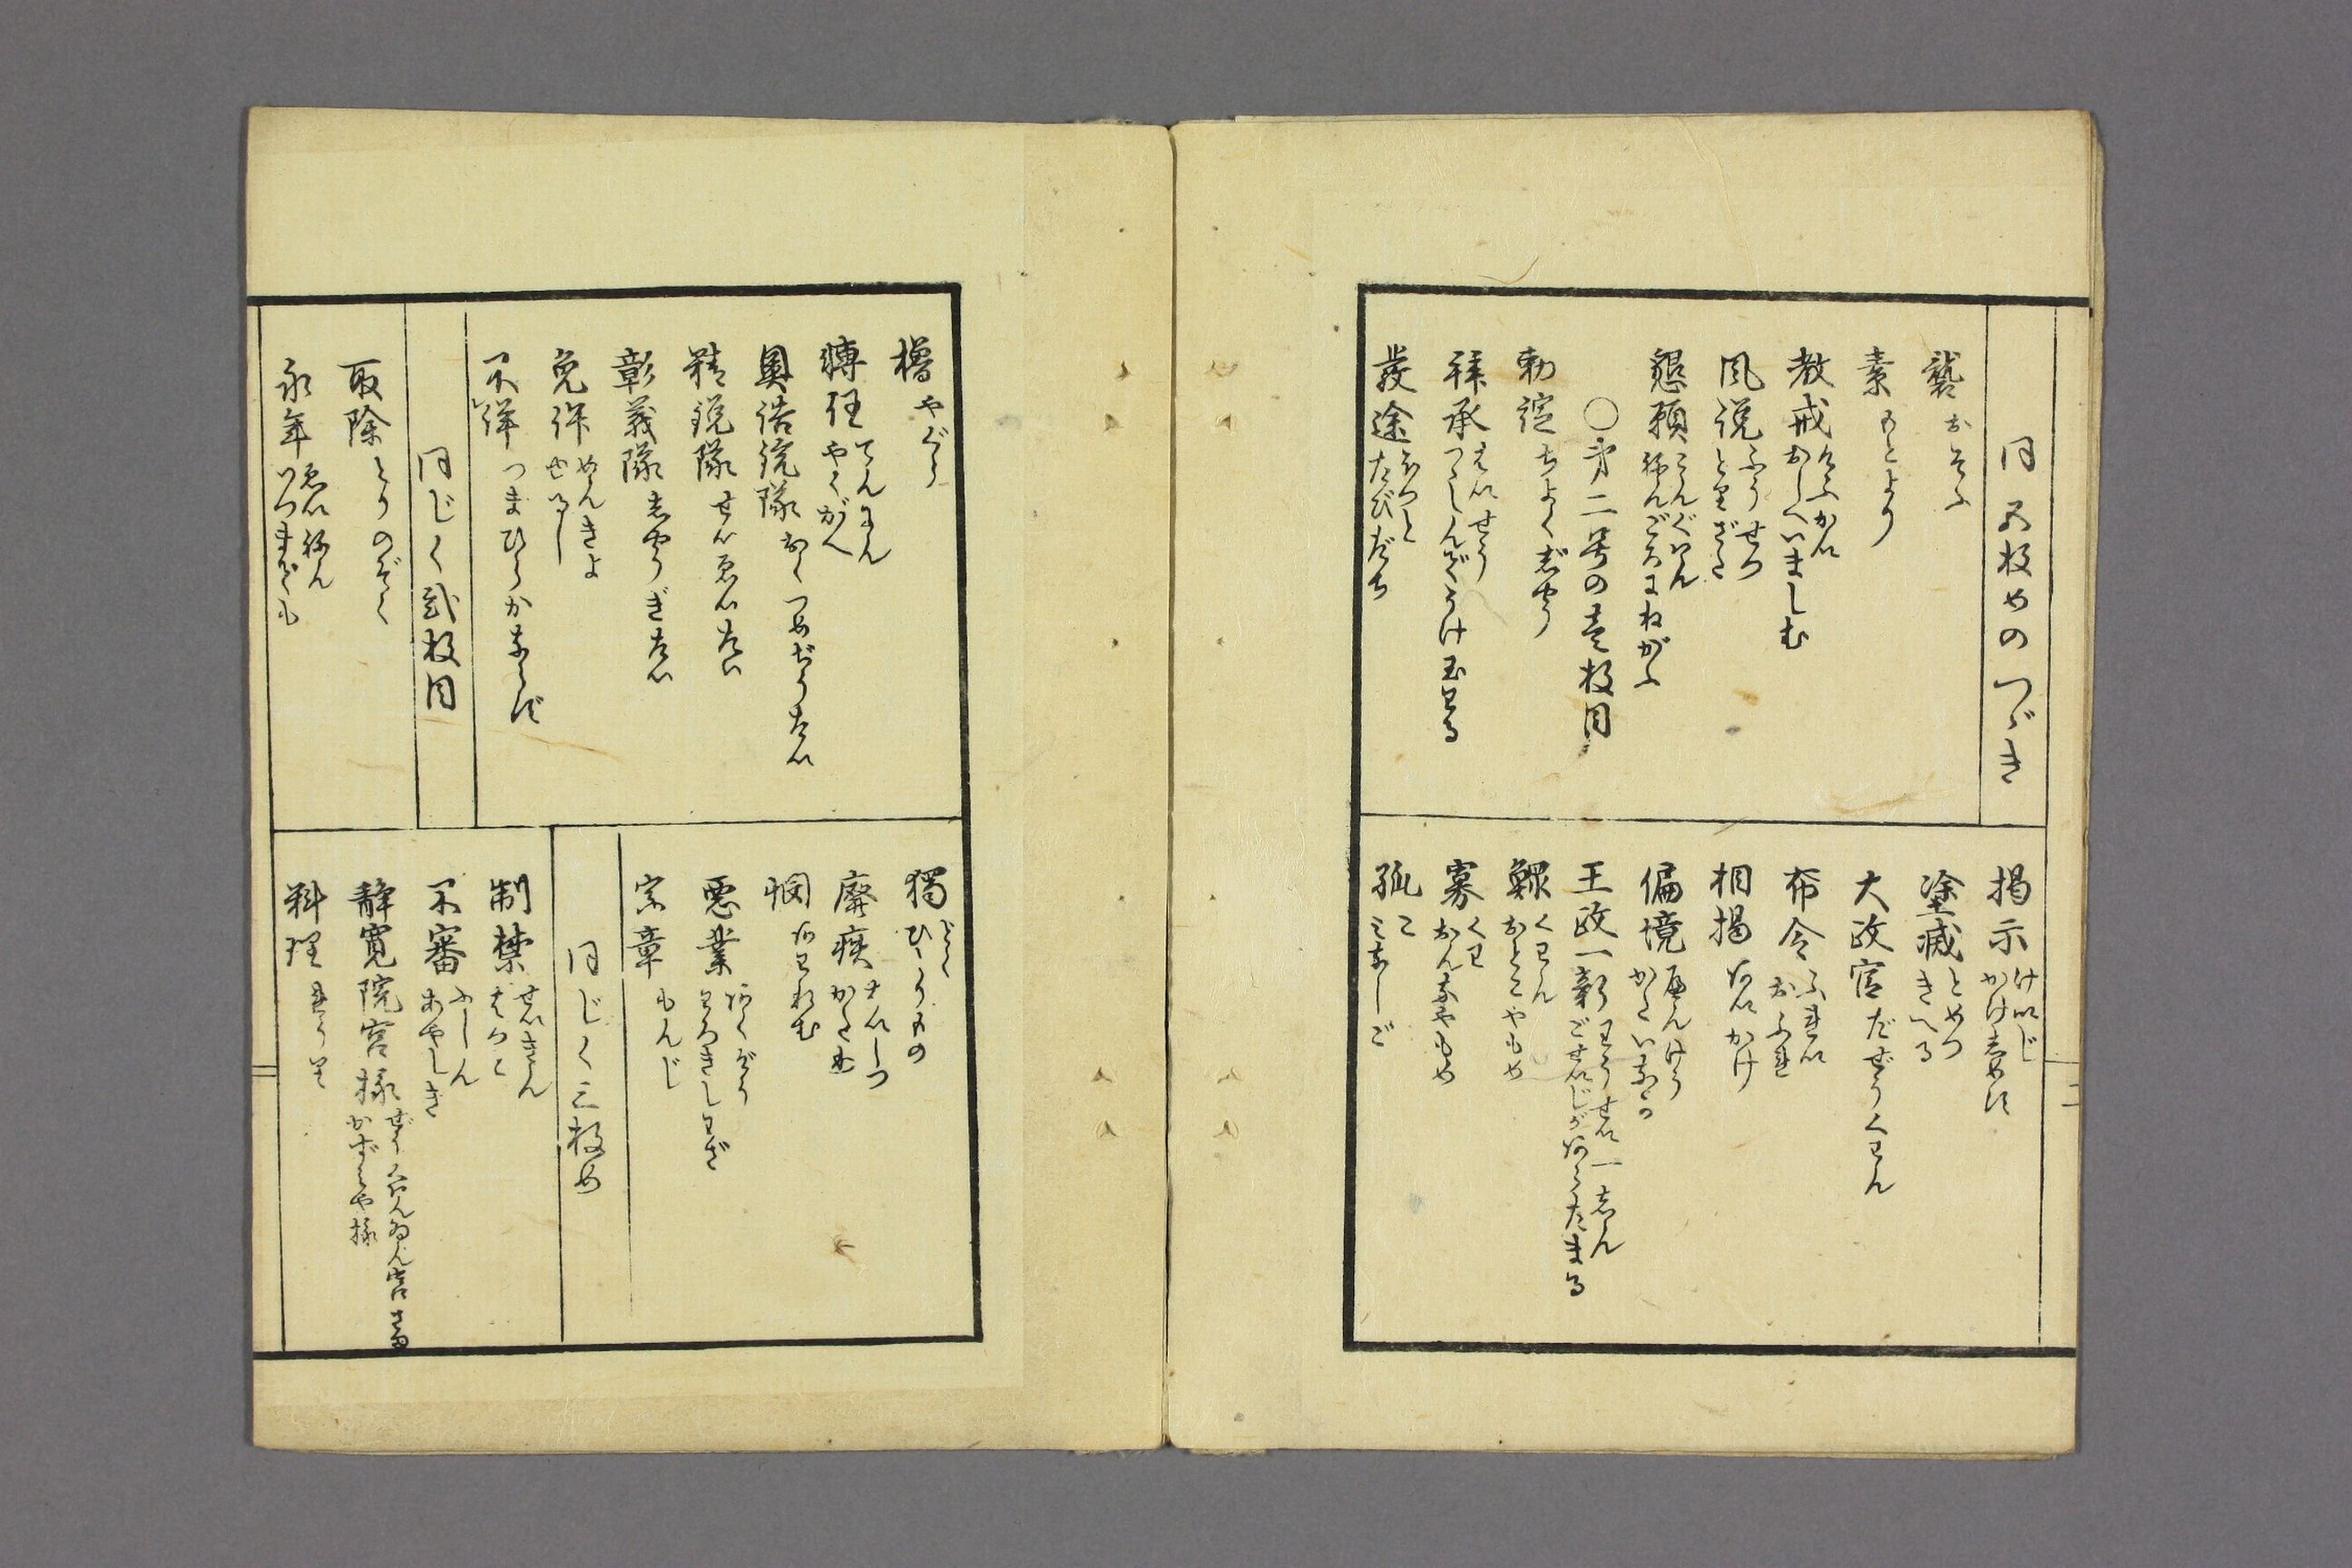 同五枚めのつゞき
襲 おそふ
素 もとより
教戒 けうかい おしへいましむ
風説 ふうせつ とりざた
懇願 こんぐわん ねんごろにねがふ
○第二号の壱枚目
勅諚 ちよくぢやう
拝承 はいせう つゝしんでうけ玉はる
発途 ほつと たびだち
掲示 けいじ かけしめす
塗滅 とめつ きへる
大政官 だぜうくわん
布令 ふれい おふれ
相掲 あいかけ
偏境 へんけう かたいなか
王政一新 わうせい一しん ごせいじがあらたまる
鰥 くわん おとこやもめ
寡 くわ おんなやもめ
孤 こ みなしご
櫓 やぐら
轉任 てんにん やくがへ
奥詰銃隊 おくつめぢうたい
精鋭隊 せいゑいたい
彰義隊 しやうぎたい
免許 めんきよ
不詳 つまひらかならず
同じく弐枚目
取除 とりのぞく
永年 ゑいねん いつまでも
獨 どく ひとりもの
廃疾 はいしつ かたわ
憫 あわれむ
悪業 あくげう わろきしわざ
宗章 もんじ
同じく三枚め
制禁 せいきん はつと
不審 ふしん あやしき
静寛院宮様 せいくわんゐん宮さま かずみや様
料理 れうり